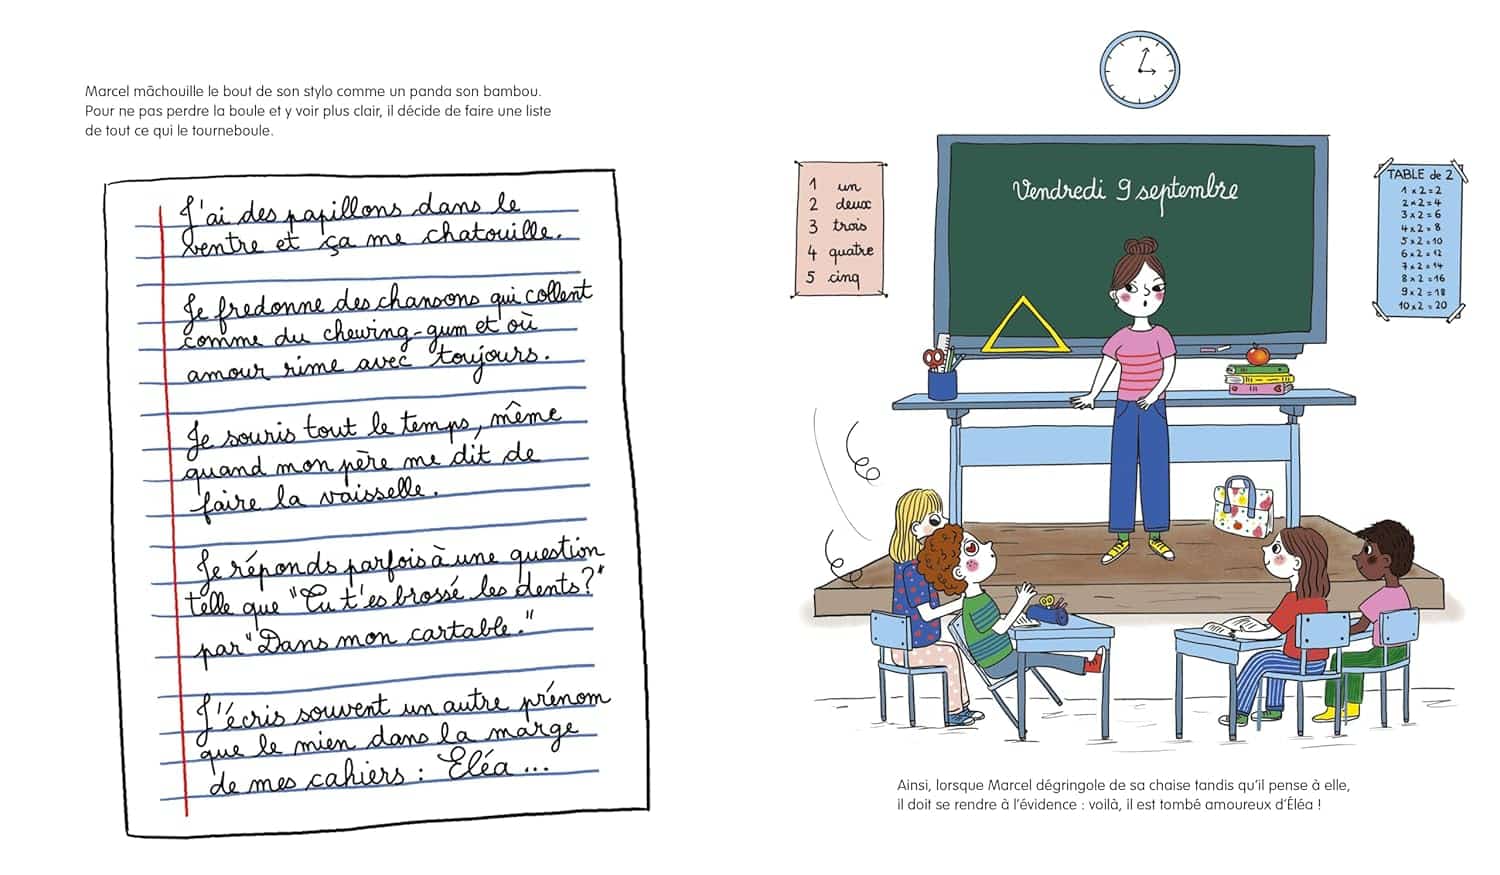 Marcel mâchouille le bout de son stylo comme un panda son bambou.
Pour ne pas perdre la boule et y voir plus clair, il décide de faire une liste
de tout ce qui le tourneboule.
J'ai des papillons dans le
ventre et ça me chatouille.
Je fredonne des chansons qui collent
comme du chewing-gum et où
amour rime avec toujours.
Je souris tout le temps, même
quand mon père me dit de
faire la vaisselle.
Je réponds parfois à une question
telle que "Tu t'es brossé les dents ?"
par "Dans mon cartable."
J'écris souvent un autre prénom
que le mien dans la marge
de mes cahiers : Eléa ...
1 un
2 deux
3 trois
4 quatre
5 cinq
Vendredi 9 septembre
TABLE de 2
1 x 2 = 2
2 x 2 = 4
3 x 2 = 6
4 x 2 = 8
5 x 2 = 10
6 x 2 = 12
7 x 2 = 14
8 x 2 = 16
9 x 2 = 18
10 x 2 = 20
Ainsi, lorsque Marcel dégringole de sa chaise tandis qu'il pense à elle,
il doit se rendre à l'évidence : voilà, il est tombé amoureux d'Éléa !